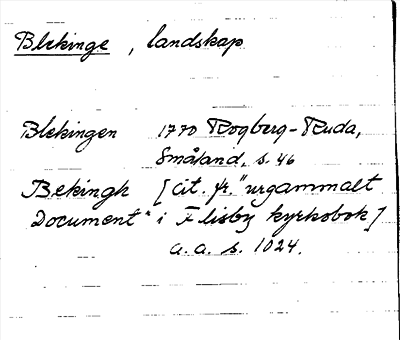 Blekinge, landskap
Blekingen 1770 Rogberg-Ruda,
Småland, s. 46
Bekingh [cit. fr. "urgammalt
Document" i Flisby kyrkobok]
a. a. s. 1024.